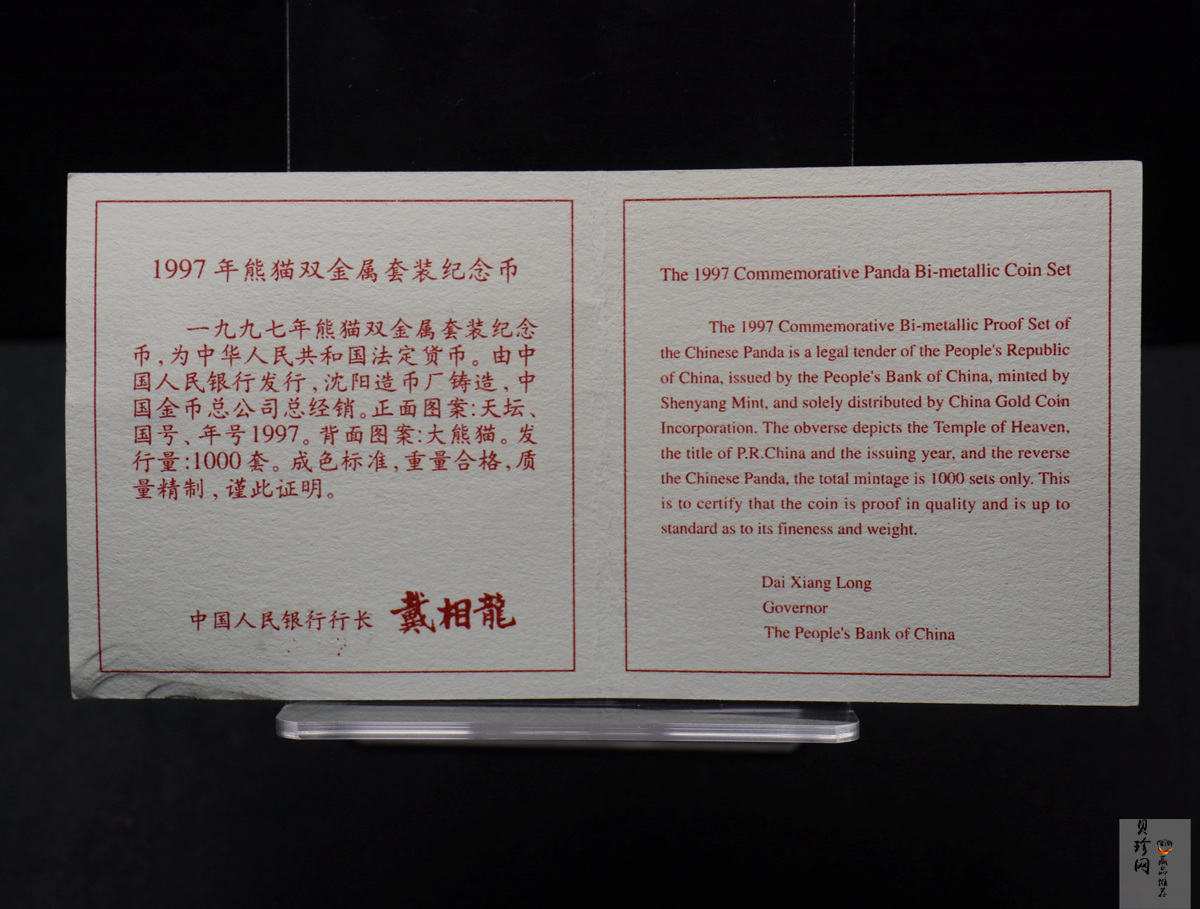 1997 年熊猫双金属套装纪念币
一九九七年熊猫双金属套装纪念
币,为中华人民共和国法定货币。由中
国人民银行发行,沈阳造币厂铸造,中
国金币总公司总经销。正面图案:天坛、
国号、年号1997。背面图案:大熊猫。发
行量:1000 套。成色标准,重量合格,质
量精制,谨此证明。
中国人民银行行长 戴相龍
The 1997 Commemorative Panda Bi-metallic Coin Set
The 1997 Commemorative Bi-metallic Proof Set of
the Chinese Panda is a legal tender of the People's Republic
of China, issued by the People's Bank of China, minted by
Shenyang Mint, and solely distributed by China Gold Coin
Incorporation. The obverse depicts the Temple of Heaven,
the title of P.R.China and the issuing year, and the reverse
the Chinese Panda, the total mintage is 1000 sets only. This
is to certify that the coin is proof in quality and is up to
standard as to its fineness and weight.
Dai Xiang Long
Governor
The People's Bank of China
贝珍网
藏品推荐